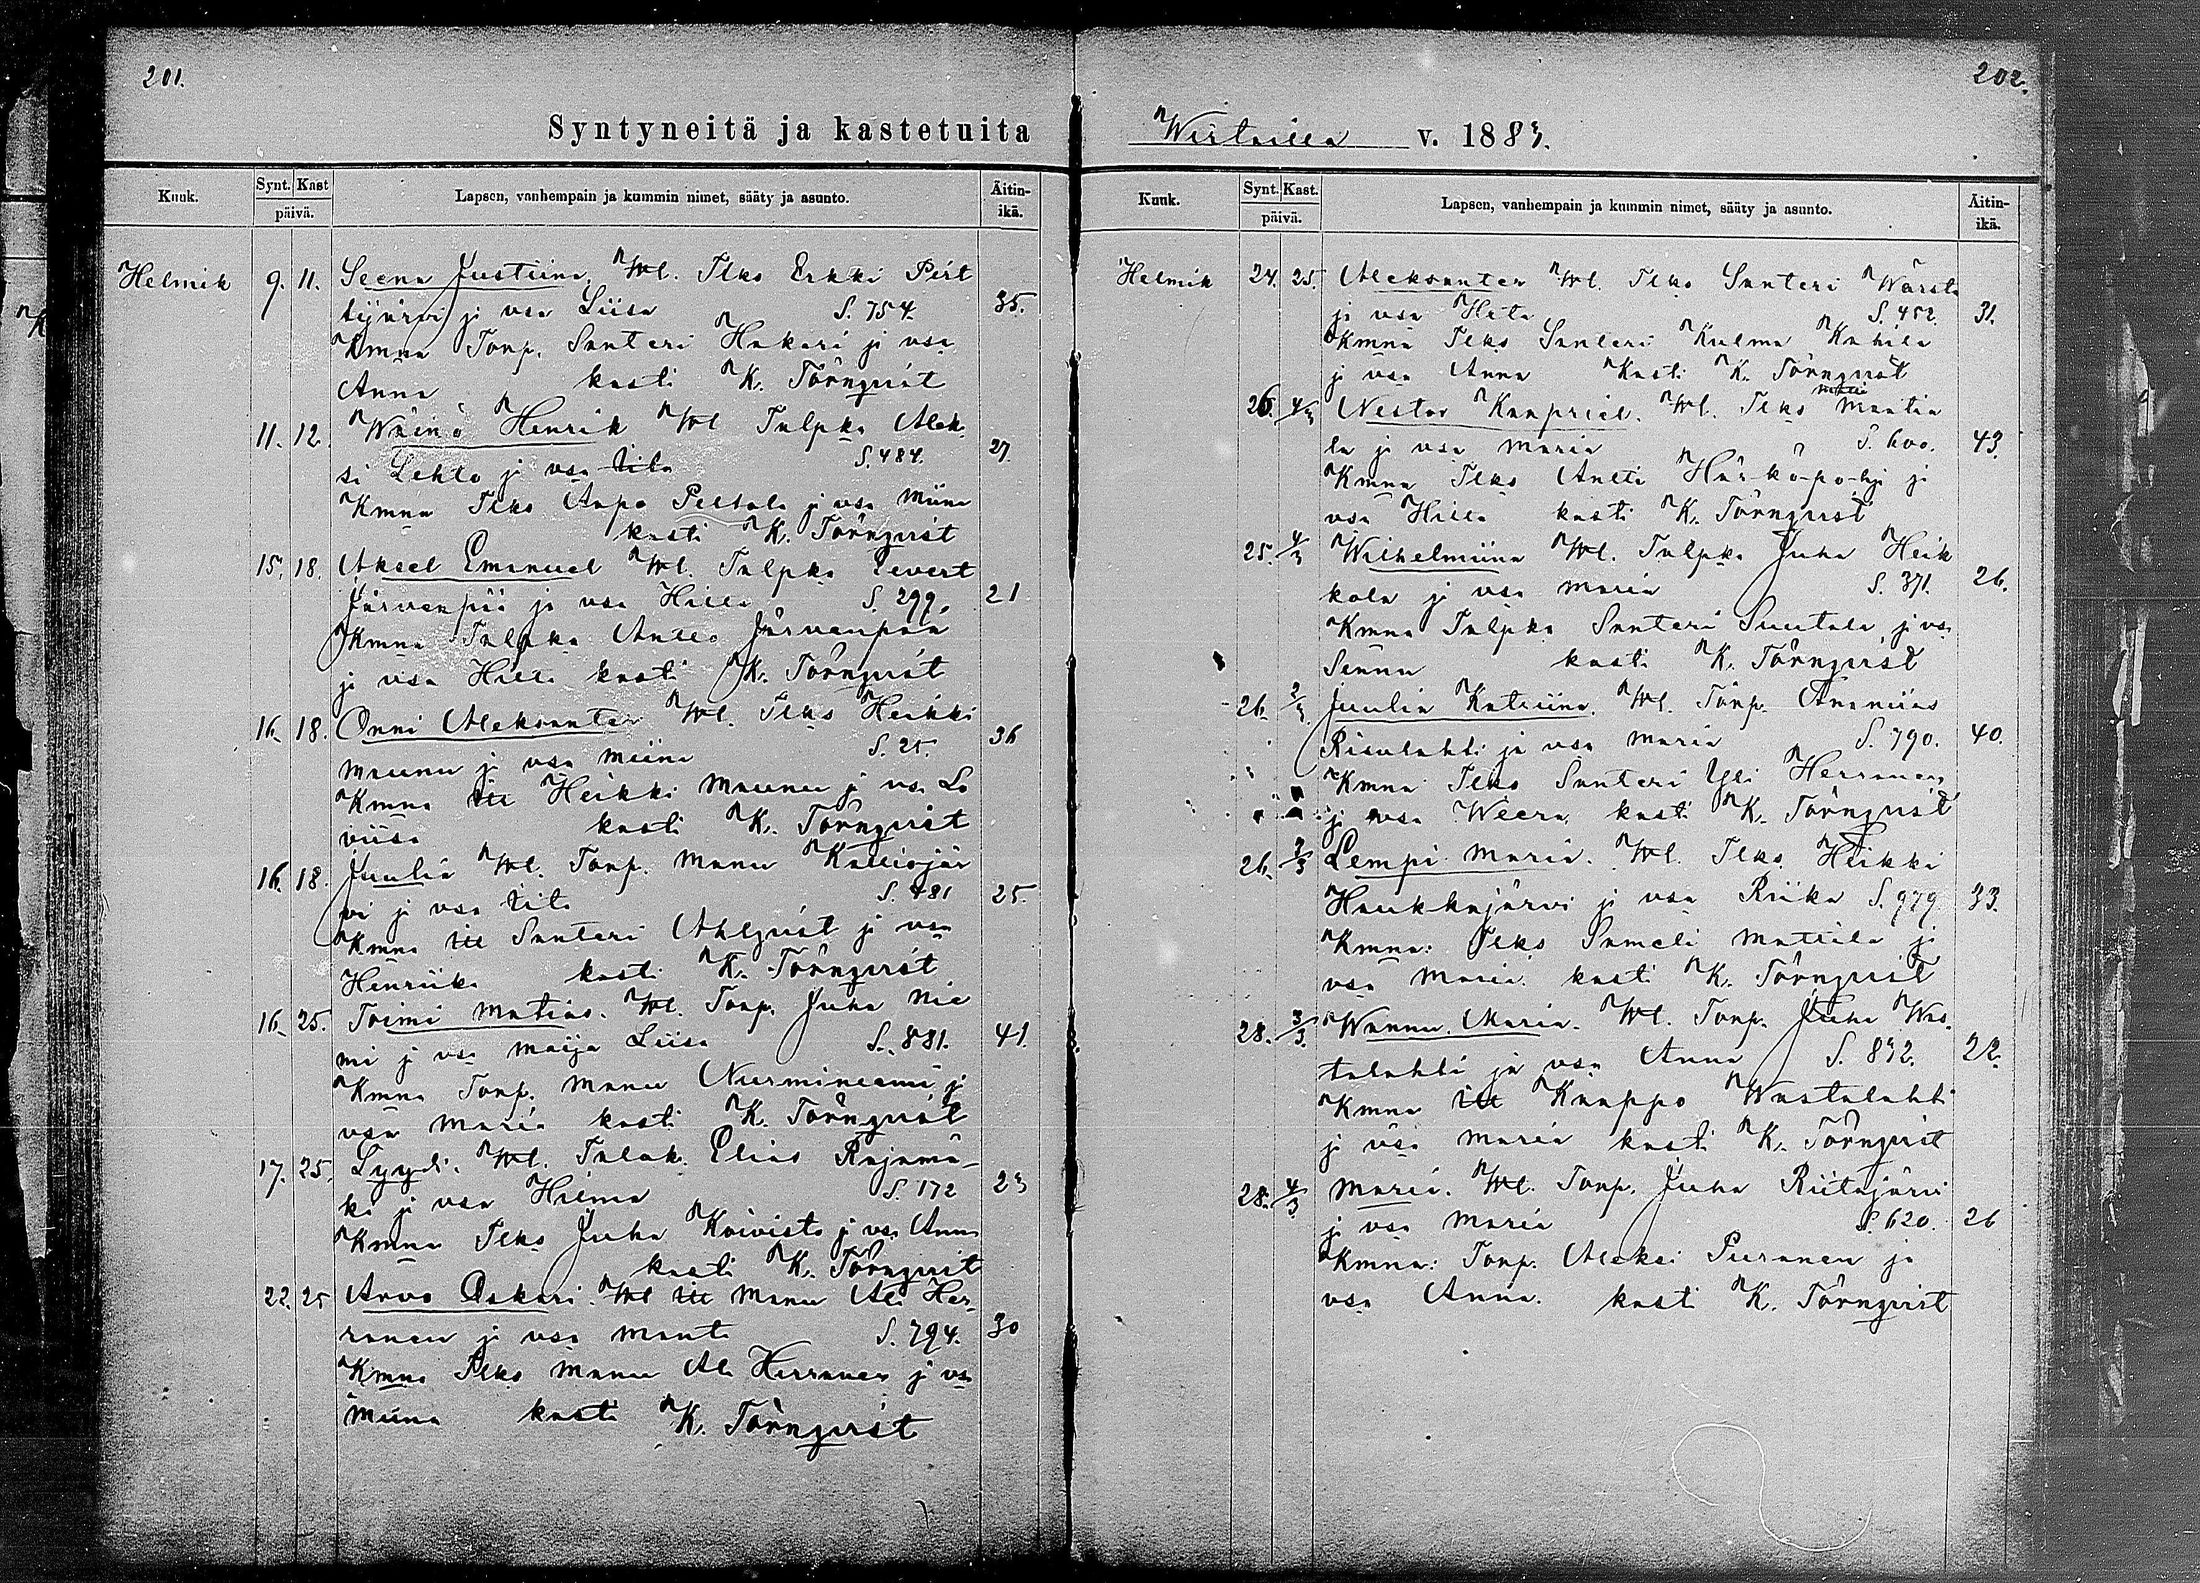 201.
Syntyneitä ja kastetuita
Kuuk.
Synt. Kast
päivä.
Lapsen, vanhempain ja kummin nimet, sääty ja asunto.
Äitin-
ikä.
Helmik 9. 11. Seena Justiina, Wl. Tlks Erkki Pert
tijärvi ja vsa Liisa S. 754. 35.
Kmna Torp. Santeri Hakari ja vsa
Anna kasti K. Törnqvist
11. 12. Wäinö Henrik Wl Talpka Alek
si Lehto ja vsa Tilta S. 484. 27.
Kmna Tlks Aapo Peltola ja vsa Miina
kasti K. Törnqvist
15. 18. Aksel Emanuel Wl. Talpka Eevert
Järvenpää ja vsa Hilta S. 299. 21
Kmna Talpka Antto Järvenpää
ja vsa Hilta kasti K. Törnqvist
16. 18. Onni Aleksanter Wl. Tlks Heikki
Maunu ja vsa Miina S. 25. 36
Kmna Heikki Maunu ja vsa Lo
viisa kasti K. Törnqvist
16. 18. Juulia Wl. Torp. Manu Kalliojär
vi ja vsa Tilta S. 481 25.
Kmna Itl Santeri Ahlqvist ja vsa
Henriika kasti K. Törnqvist
16. 25. Toimi Matias. Wl. Torp. Juha Nie
mi ja vsa Maija Liisa S. 881. 41.
Kmna Torp. Manu Nurminiemi ja
vsa Maria kasti K. Törnqvist
17. 25. Lyydi. Wl. Talok. Elias Rajamä-
ki ja vsa Hilma S. 172 23
Kmna Tlks Juha Koivisto ja vsa Anna
kasti K. Törnqvist
22. 25 Arvo Oskari. Wl Itl Manu Ali Her-
ranen ja vsa Manta S. 794. 30
Kmna Tlks Manu Ali Herranen ja vsa
Miina kasti K. Törnqvist
202.
Wirtailla v. 1883.
Kuuk.
Synt. Kast.
päivä.
Lapsen, vanhempain ja kummin nimet, sääty ja asunto.
Äitin-
ikä.
Helmik 24. 25. Aleksanter Wl. Tlks Santeri
ja vsa Heta S. 452. 31.
Kmna Tlks Santeri Kulma Kahila
ja vsa Anna Kasti K. Törnqvist
26. 4/3 Nestor Kaapriel. Wl. Tlks Mattia
la ja vsa Maria S. 600. 43.
Kmna Tlks Antti Här-kö-po-hji ja
vsa Hilta kasti K. Törnqvist
25. 4/3 Wilhelmiina Wl. Talpka Juha Heik
kola ja vsa Maria S. 371. 26.
Kmna Talpka Santeri Suutala ja vsa
Sanna kasti K. Törnqvist
26. 2/3 Juulia Katriina. Wl. Torp. Ananias
Risulahti ja vsa Maria S. 790. 40.
Kmna Tlks Santeri Yli Herranen
ja vsa Weera, kasti K. Törnqvist
26. 3/3 Lempi Maria. Wl. Tlks Heikki
Haukkajärvi ja vsa Riika S. 979 33.
Kmna: Tlks Sameli Mattila ja
vsa Maria. kasti K. Törnqvist
28. 3/3 Wannu Maria. Wl. Torp. Juha Was-
talahti ja vsa Anna S. 832. 22.
Kmna Itl Kaappo Wastalahti
ja vsa Maria kasti K. Törnqvist
28. 4/3 Maria. Wl. Torp. Juha Riitajärvi
ja vsa Maria S. 620. 26
Kmna: Torp. Aleksi Puranen ja
vsa Anna. kasti K. Törnqvist